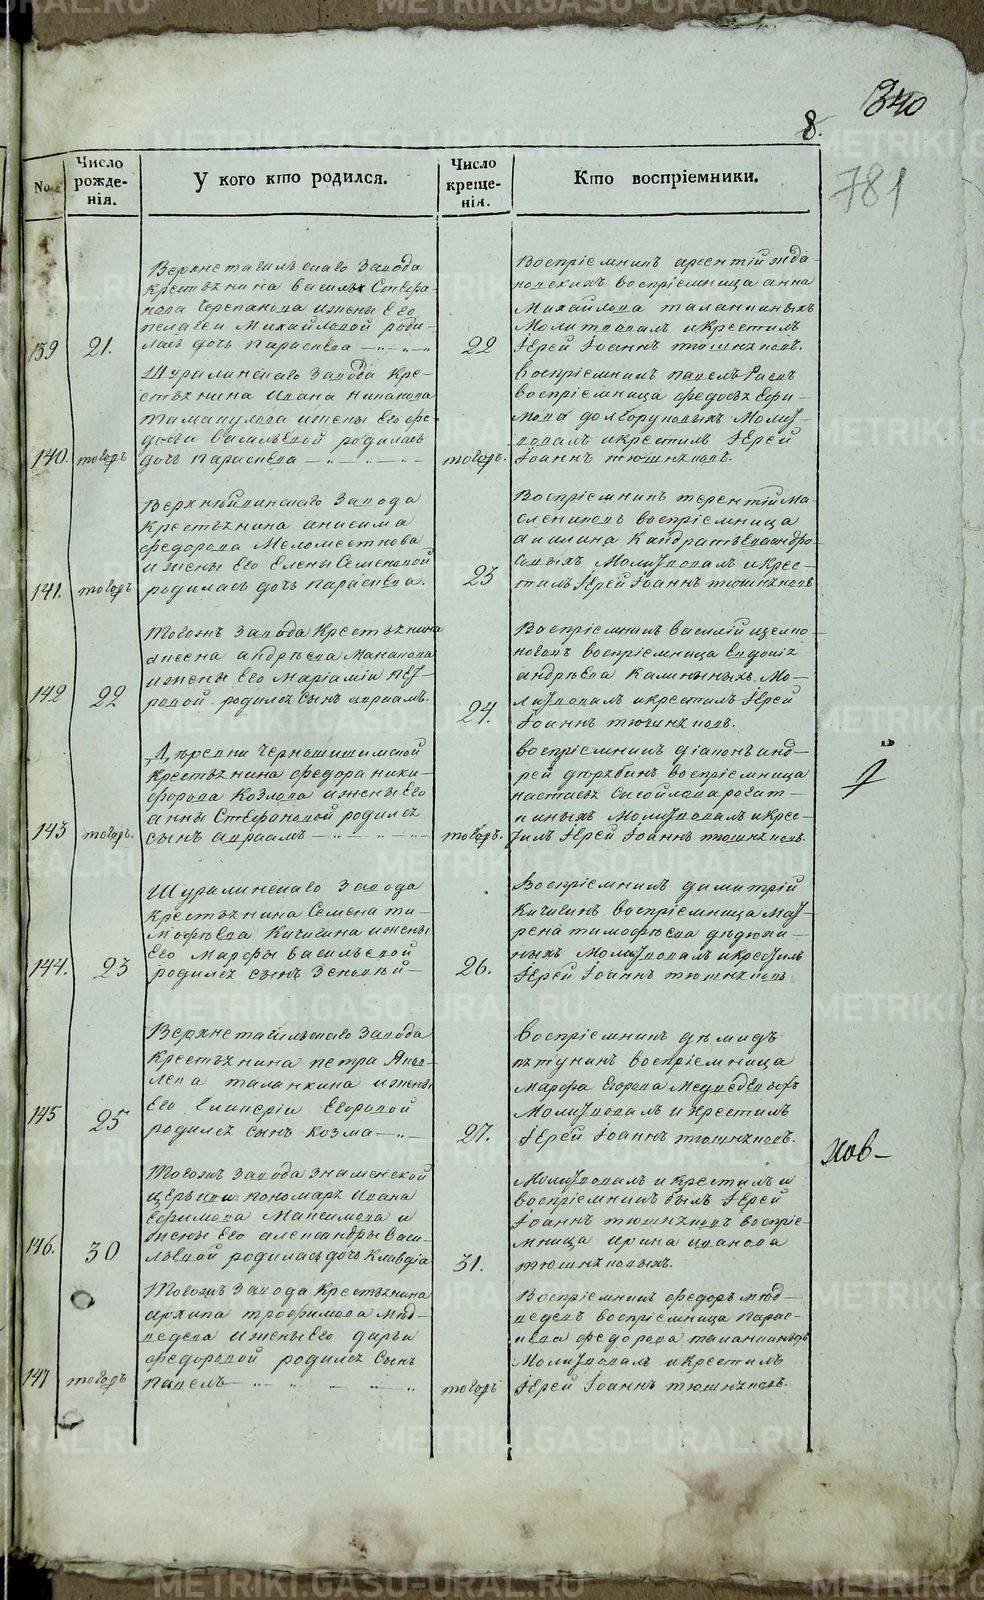 340
8.
781
No.
Число рожде-
нія.
У кого кто родился.
Число креще-
нія.
Кто воспріемники.
139
21.
Верхнетагильскаго Завода
крестьянина василья Стефа-
нова Черепанова и жены Его
пелагеи Михайловой роди-
лась дочь параскева
22
Воспріемникъ арсентій жда-
новскихъ воспріемница анна
Михайлова таланкиныхъ
Молитвовалъ и крестилъ
Іерей Іоаннъ тюшняковъ.
140.
тогожъ
Шуралинскаго Завода Кре-
стьянина Ивана
и жены Его фе-
досьи васильевой родилась
дочь параскева
тогожъ.
Воспріемникъ павелъ
воспріемница федосья Ефи-
мова долгоруковыхъ Молит-
вовалъ и крестилъ Іерей
Іоаннъ тюшняковъ.
141.
тогожъ
Верхнейвинскаго Завода
крестьянина анисима
федорова
и жены Его Елены Семеновой
родилась дочь параскева.
23
Воспріемникъ терентій Ма-
слениковъ воспріемница
акилина
Молитвовалъ и крес-
тилъ Іерей Іоаннъ тюшняковъ
142
22
Тогожъ Завода Крестьянина
андрѣева
и жены Его Маріаміи Пет-
ровой родился Сынъ авраамъ.
24.
Воспріемникъ василій
воспріемница Евдокія
андрѣева Калининыхъ Мо-
литвовалъ и крестилъ Іерей
Іоаннъ тюшняковъ.
143
тогожъ.
Деревни Черношишимской
крестьянина федора ники-
форова Козлова и жены Его
анны Стефановой родился
Сынъ авраамъ
тогожъ.
воспріемникъ діаконъ анд-
рей дюрягинъ воспріемница
настасья
Молитвовалъ и крес-
тилъ Іерей Іоаннъ тюшняковъ.
144.
23
Шуралинскаго Завода
крестьянина Семена ти-
мофѣева Кичигина и жены
Его Марфы васильевой
родился сынъ Зеновѣй
26.
Воспріемникъ димитрій
Кичигинъ воспріемница Мат-
рена тимофѣева дѣдюхи-
ныхъ Молитвовалъ и крестилъ
Іерей Іоаннъ тюшняковъ
145
25
Верхнетагильскаго Завода
Крестьянина петра Яков-
лева таланкина и жены
Его Гликеріи Егоровой
родился сынъ козма
27.
Воспріемникъ демидъ
пятунинъ воспріемница
марфа Егорова Медведевыхъ
Молитвовалъ и Крестилъ
Іерей Іоаннъ тюшняковъ.
146.
30
Тогожъ Завода Знаменской
церькви пономаря Ивана
Ефимова Максимова и
жены Его александры Васи-
льевой родилась дочь Клавдіа
31.
Молитвовалъ и Крестилъ и
воспріемникъ былъ Іерей
Іоаннъ тюшняковъ воспріе-
мница ирина иванова
тюшняковыхъ.
147
тогожъ
Тогожъ Завода Крестьянина
архипа трофимова Мед-
ведева и жены Его дарьи
федоровой родился Сынъ
павелъ
тогожъ
Воспріемникъ федоръ мед-
ведевъ воспріемница парас-
кева федорова таланкиныхъ
Молитвовалъ и крестилъ
Іерей Іоаннъ тюшняковъ.
METRIKI.GASO-URAL.RU